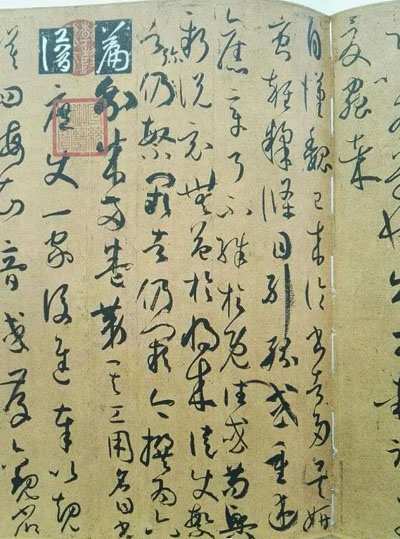 自漢魏已來論書者多矣妍
蚩雜糅條目糾紛或重述
舊章了不殊於既往或苟興
新說竟無益於將來徒使繁
者彌繁闕者仍闕今撰為六
篇分成兩卷第其工用名曰書
譜庶使一家後進奉以規
模四海知音或存觀省